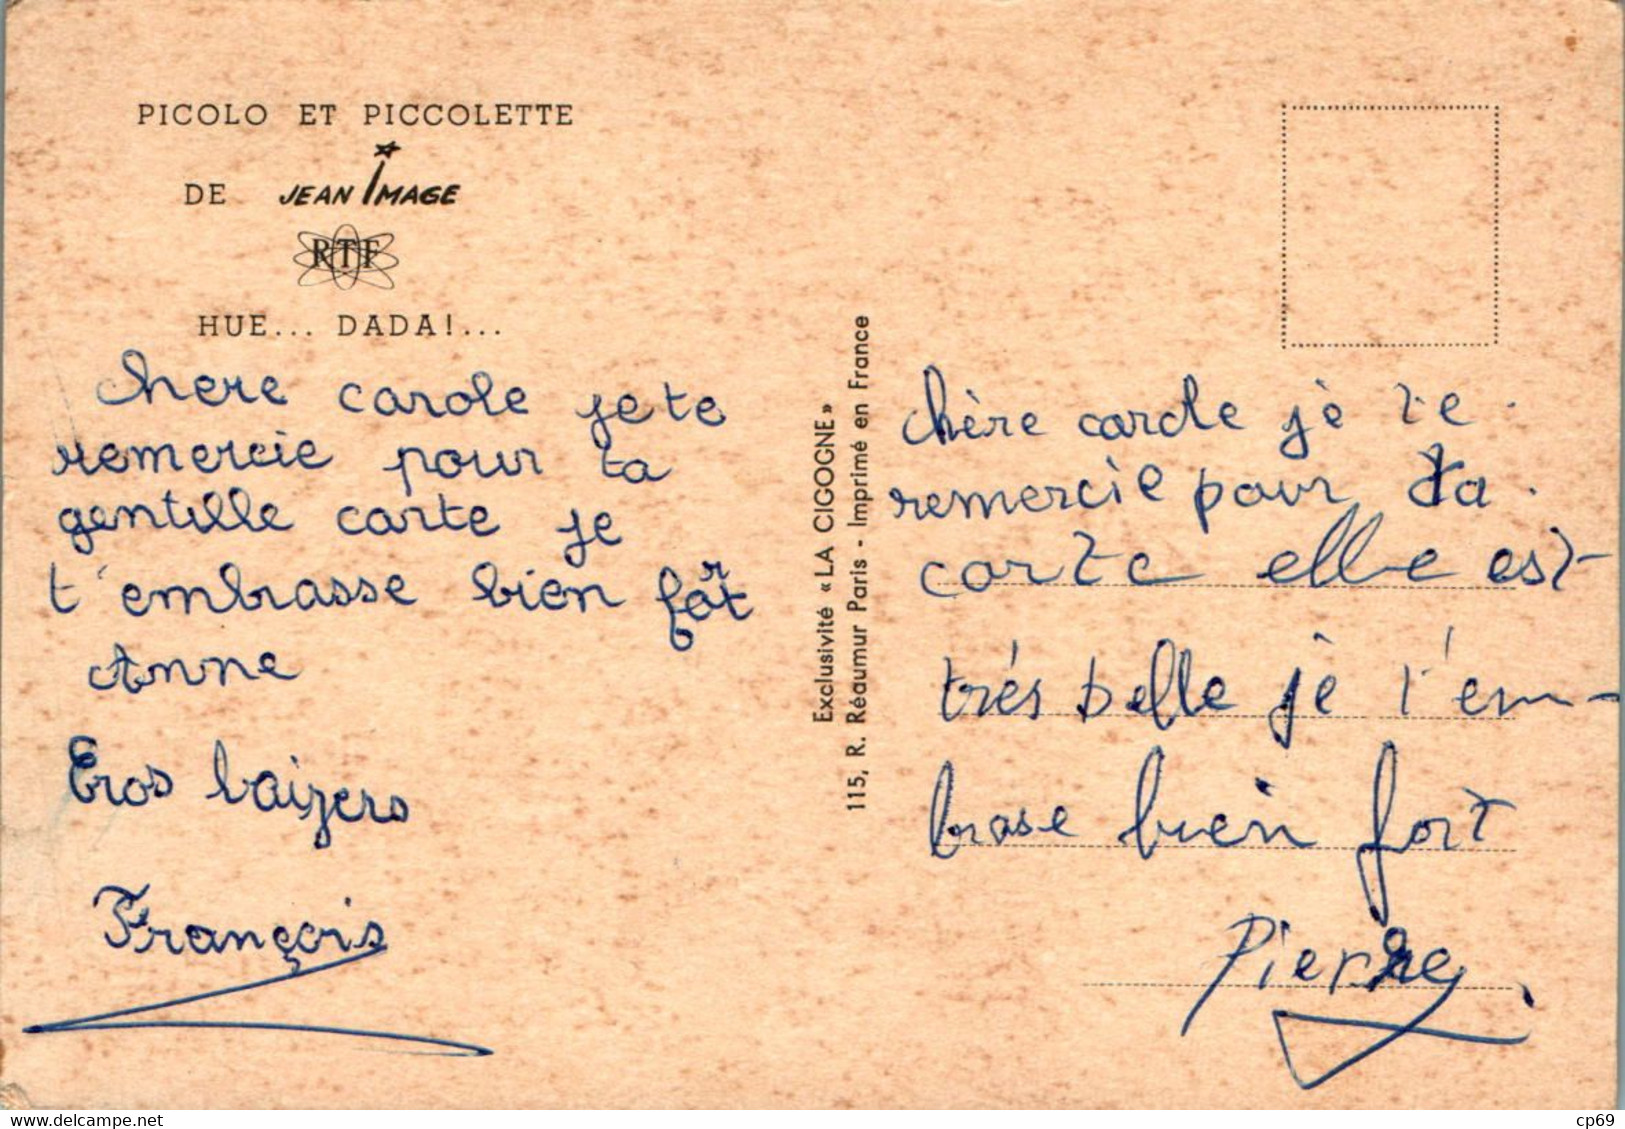 PICOLO ET PICCOLETTE
DE JEAN IMAGE
RTF
HUE... DADA!...
chere carole je te
remercie pour ta
gentille carte je
t'embrasse bien fort
Anne
Gros baizers
François
Exclusivité « LA CIGOGNE »
115, R. Réaumur Paris - Imprimé en France
chère carole jè te
remercie pour ta
carte elle est
trés belle jè t'em-
brase bien fort
Pierre
delcampe.net
cp69